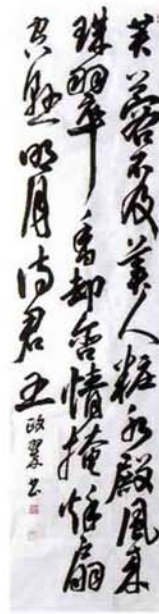 芙蓉不及美人粧水殿風来
珠翠香却含情掩秋扇
空懸明月待君王